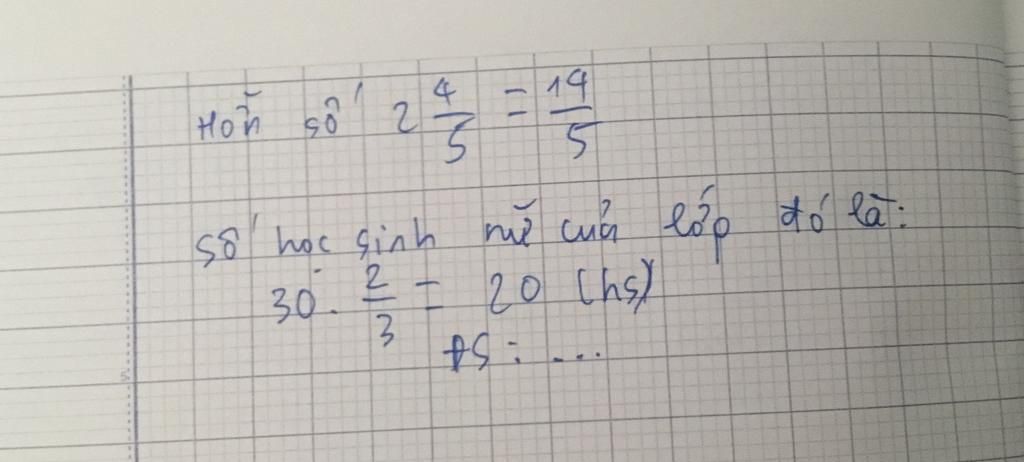 Hỗn số 2 4/5 = 14/5
Số học sinh nữ của lớp đó là:
30 . 2/3 = 20 (hs)
ĐS : ...